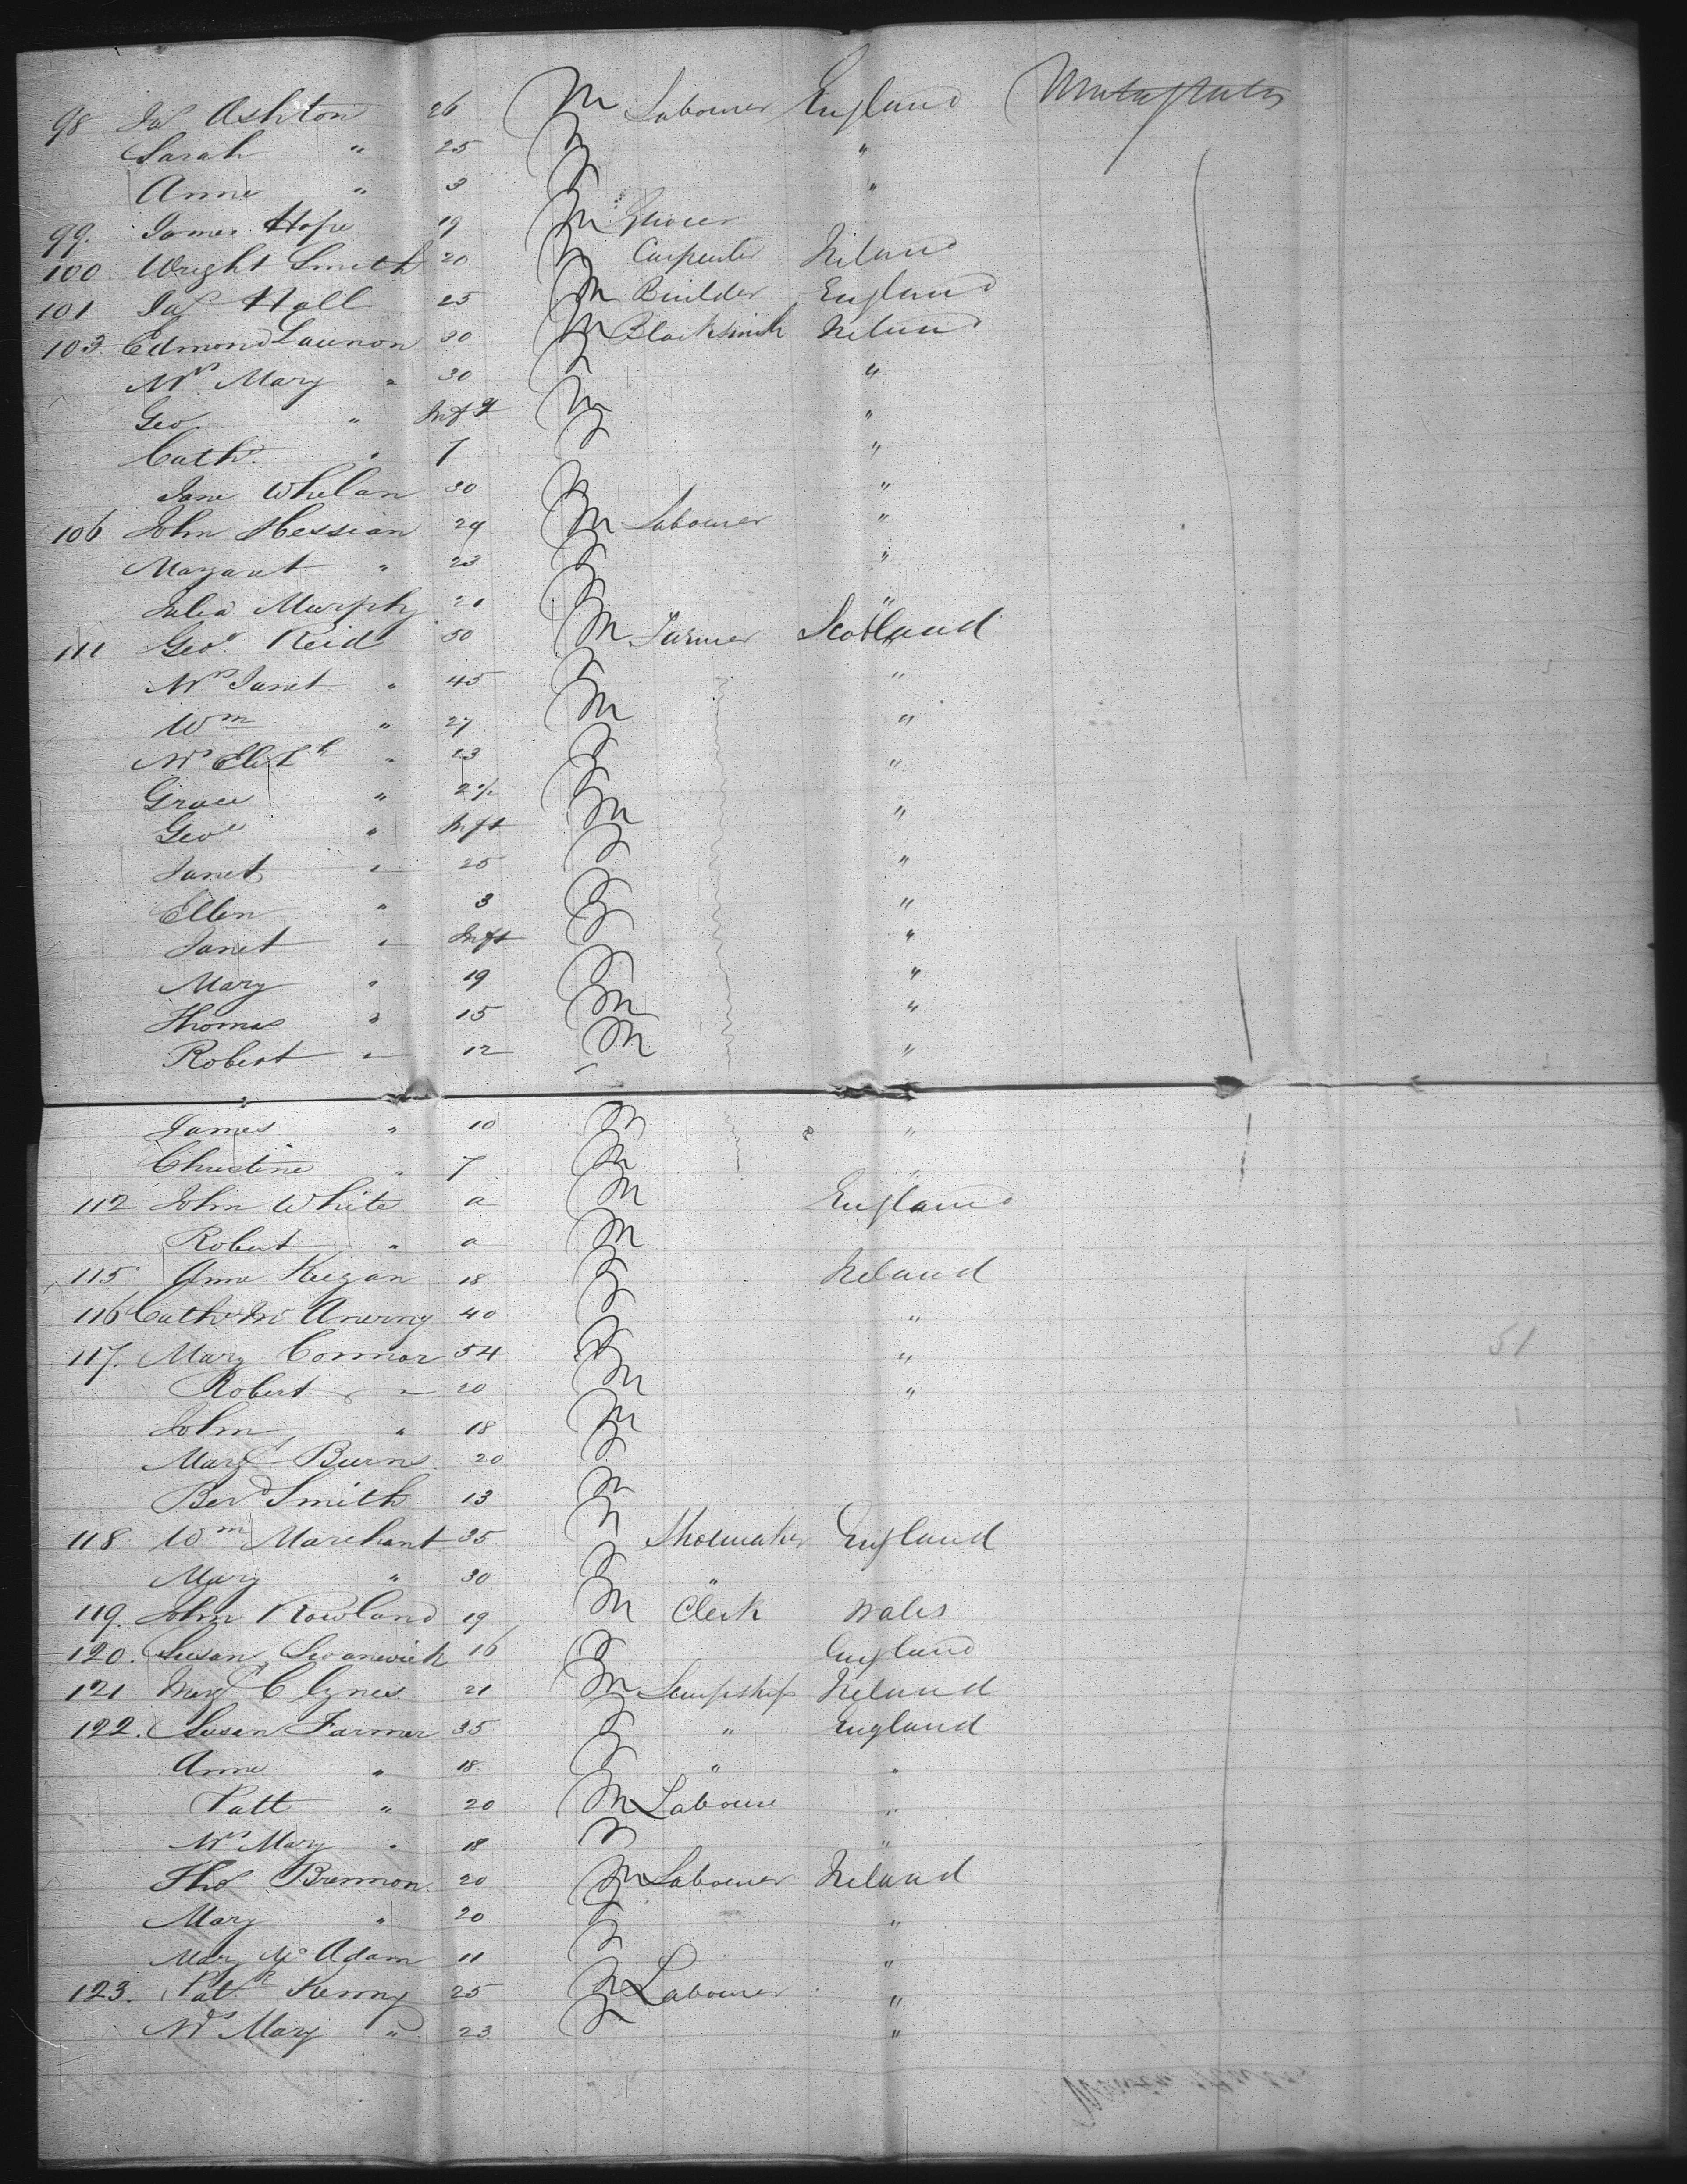 98 Jas Ashton 26 M Labourer England United States
Sarah " 25 F "
Anne " 3 F "
99. James Hope 19 M Grocer
100 Wright Smith 20 M Carpenter Ireland
101 Jas Hall 25 M Builder England
103. Edmond Launon 30 M Blacksmith Ireland
Mrs Mary " 30 F "
Geo " Inft M "
Cathe " 7 F "
Jane Whelan 30 "
106 John Hessian 24 M Labourer "
Margaret " 23 F "
Julia Murphy 21 F "
111 Geo. Reid 50 M Farmer Scotland
Mrs Janet " 45 F "
Wm " 27 M "
Mrs Elizth " 23 F "
Grace " 2½ F
Geoe " Inft M "
Janet " 25 F "
Ellen " 3 F "
Janet " Inft F "
Mary " 19 F "
Thomas " 15 M "
Robert " 12 M "
James " 10 M "
Christine " 7 "
112 John White a M England
Robert " a M
115 Anne Keegan 18 F Ireland
116 Cathe Mc Anerny 40 F "
117. Mary Connor 54 F "
Robert " 20 M "
John " 18 M
Margt Burns 20 F
Berd Smith 13 M
118 Wm Marchant 35 M Shoemaker England
Mary " 30 F "
119. John Rowland 19 M Clerk Wales
120. Susan Swanwick 16 F England
121 Margt Clynes 21 Ireland
122. Susan Farmer 35 F " England
Anne " 18 F " "
Patt " 20 M Laboure "
Mrs Mary " 18 "
Thos Brennon 20 M Labourer Ireland
Mary " 20 F "
Mary Mc Adam 11 F "
123. Patk Kenny 25 M Labourer "
Mrs Mary " 23 F "
51